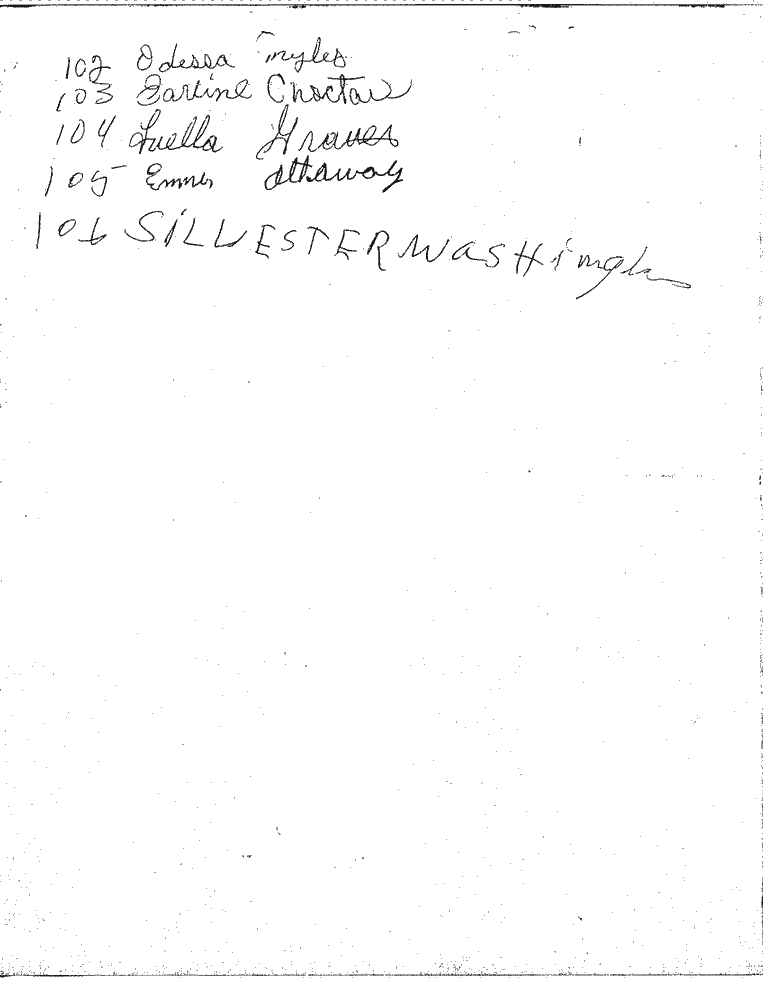 102 Odessa Myles
103 Earline Choctaw
104 Luella Graves
105 Emma Attaway
106 SiLVESTER WasHington